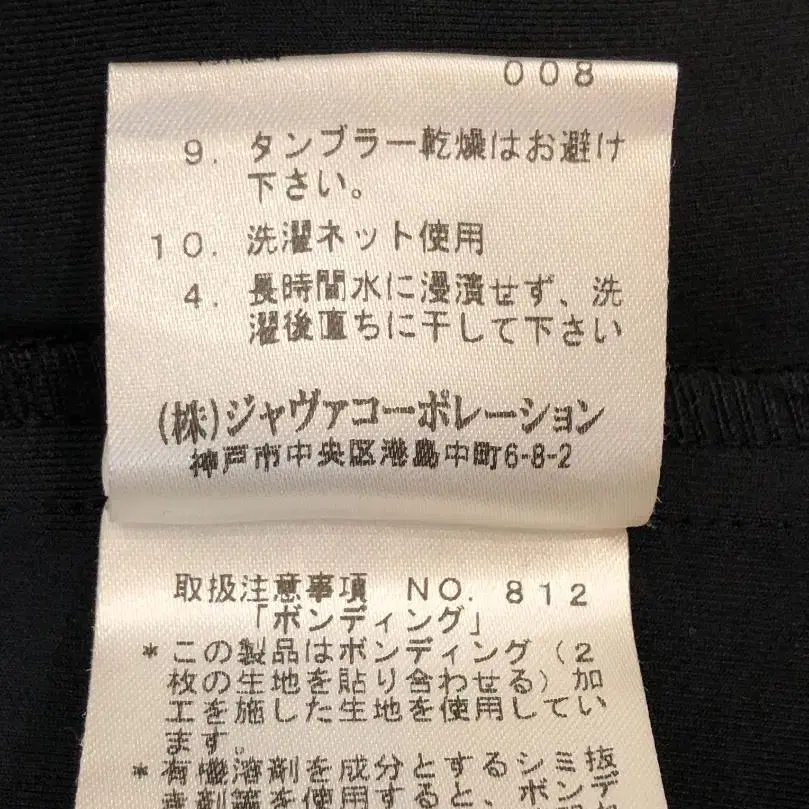 008
9. タンブラー乾燥はお避け
下さい。
10. 洗濯ネット使用
4. 長時間水に浸漬せず、洗
濯後直ちに干して下さい
(株)ジャヴァコーポレーション
神戸市中央区港島中町6-8-2
取扱注意事項 NO. 812
「ボンディング」
*この製品はボンディング(2
枚の生地を貼り合わせる)加
工を施した生地を使用してい
ます。
*有機溶剤を成分とするシミ抜
き剤等を使用すると、ボンデ